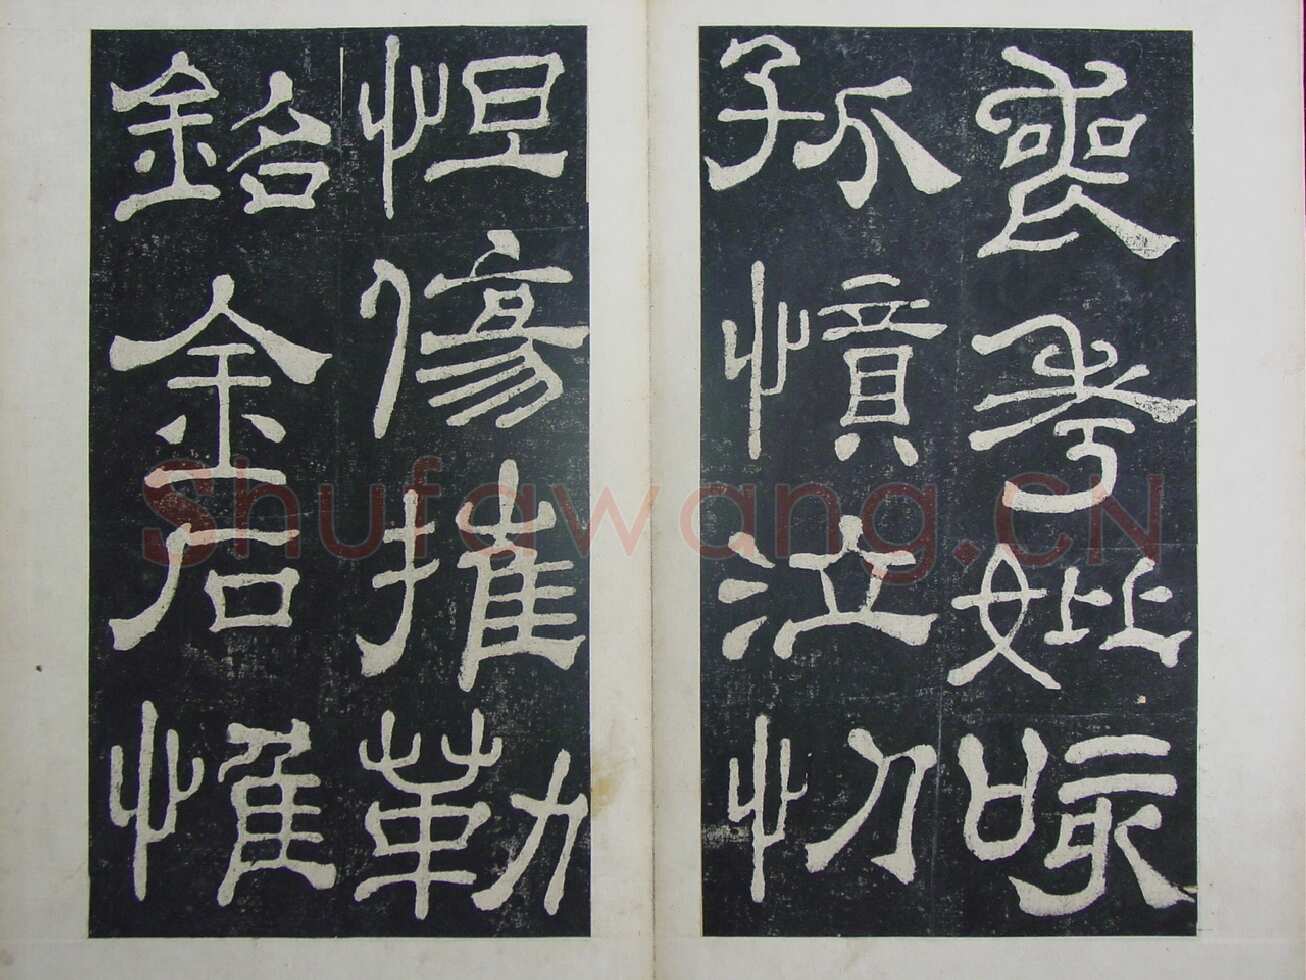 喪考妣咳
孤憤泣忉
怛傷摧勒
銘金石惟
Shufawang.CN